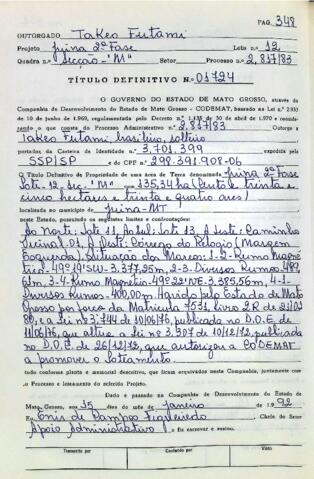 PAG. 348
OUTORGADO Takeo Futami
Projeto Juina 2ª Fase Lote n.º 12
Quadra n.º Secção "M" Setor Processo n.º 2.837/83
TÍTULO DEFINITIVO N.º 01724
O GOVERNO DO ESTADO DE MATO GROSSO, através da
Companhia de Desenvolvimento do Estado de Mato Grosso - CODEMAT, baseado na Lei n.º
de 10 de junho de 1969, regulamentada pelo Decreto n.º 1.135 de 30 de abril de 1970 e
o que consta do Processo Administrativo n.º 2.837/83 Outorga a
Takeo Futami, brasileiro, solteiro
portador da Carteira de Identidade n.º 3.701.399 expedida pela
SSP/SP e do CPF n.º 298.391.908-06
O Título Definitivo de Propriedade de uma área de Terra denominada Juina 2ª Fase
Lote 12, sec. "M" = 135,34 ha (Cento e trinta e
cinco hectares e trinta e quatro ares)
localizada no município de Juina-MT
neste Estado, possuindo os seguintes limites e confrontações:
Ao Norte: Lote 11, Ao Sul: Lote 13, A Leste: Caminho
Vicinal 01, A Oeste: Córrego do Relógio (Margem
Esquerda). Situação da Marcos: 1-2-Rumo Magné-
tico-49º19'SW-3.377,95m, 2-3-Diversos Rumos-489,
61m, 3-4-Rumo Magnético-49º22'NE-3.385,56m, 4-1-
Diversos Rumos-400,00m. Havido pelo Estado de Mato
Grosso por força da Matrícula 7531, livro 2R de
80, e a lei nº 3.744 de 10/06/76, publicada no D.O.E. de
11/06/76, que altera a lei nº 3.307 de 10/12/72, publicada
no D.O.E. de 26/12/72, que autorizou a CODEMAT
a promover o loteamento.
tudo conforme planta e memorial descritivo, que ficam arquivados nesta Companhia, juntamente com
o Processo e loteamento do referido Projeto.
Dado e passado na Companhia de Desenvolvimento do Estado de
Mato Grosso, aos 15 dias do mês de janeiro de 1992
Eu Enis de Campos Figueiredo, Chefe do Setor
Apoio Administrativo o fiz escrever e assino.
Transcrito por Conferido por Visto